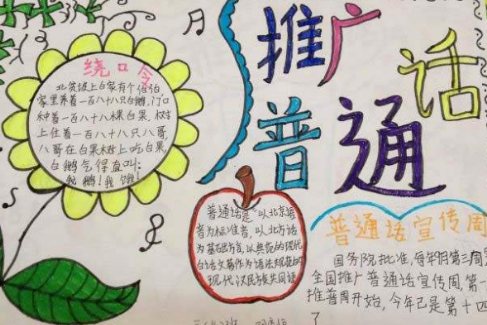 推广
普通话
绕口令
北贫坡上白家有个伯伯,
家里养着一百八十八只白鹅,门口
种着一百八十八棵白果,树
上住着一百八十八只八哥
八哥在白果树上吃白果
白鹅气得直叫:
我鹅!我饿!
普通话是“以北京语
音为标准音,以北方话
为基础方言,以典范的现代
白话文著作为语法规范的
现代汉民族共同语
普通话宣传周
国务院批准,每年9月第三周为
全国推广普通话宣传周。第一
推普周开始,今年已是第十四
了